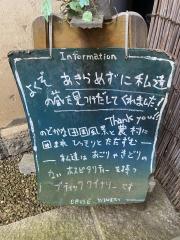 Information
よくぞ あきらめずに私達
の蔵を見つけだしてくれました!
Thank you!!
のどかな田園風景と農村に
囲まれ ひっそりとたたずむ
私達はおごりやきどりの
ない ホスピタリティーを持つ
ブティックワイナリーです